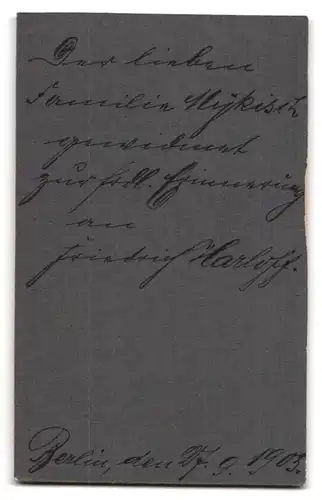 Der lieben
Familie Mykisch
gewidmet
zur frdl. Erinnerung
an
Friedrich Harloff.
Berlin, den 27. 9. 1903.